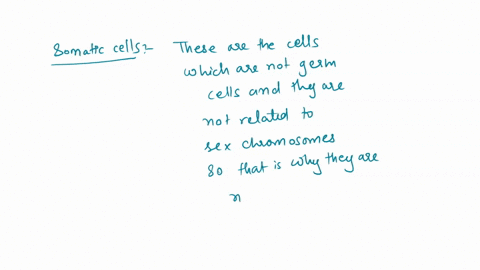 Somatic cells:- These are the cells
which are not germ
cells and they are
not related to
sex chromosomes
so that is why they are
n